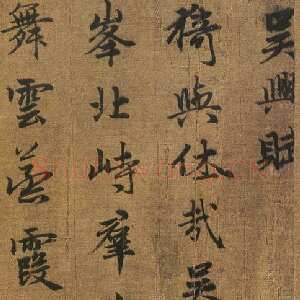 吳興賦
猗與休哉吳
峯北峙羣
舞雲蒸霞